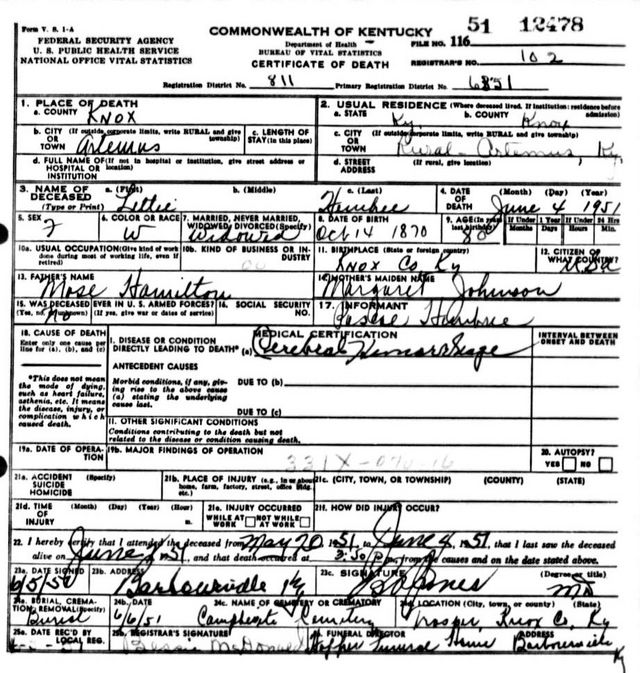 Form V. S. 1-A
FEDERAL SECURITY AGENCY
U. S. PUBLIC HEALTH SERVICE
NATIONAL OFFICE VITAL STATISTICS
COMMONWEALTH OF KENTUCKY
Department of Health
BUREAU OF VITAL STATISTICS
CERTIFICATE OF DEATH
51 12478
FILE NO. 116
REGISTRAR'S NO. 102
Registration District No. 811 Primary Registration District No. 6851
1. PLACE OF DEATH
a. COUNTY Knox
b. CITY (If outside corporate limits, write RURAL and give township) OR TOWN Artemus
c. LENGTH OF STAY (in this place)
d. FULL NAME OF (If not in hospital or institution, give street address or location) HOSPITAL OR INSTITUTION
2. USUAL RESIDENCE (Where deceased lived. If institution: residence before admission)
a. STATE Ky. b. COUNTY Knox
c. CITY (If outside corporate limits, write RURAL and give township) OR TOWN Rural-Artemus, Ky.
d. STREET ADDRESS (If rural, give location)
3. NAME OF DECEASED (Type or Print) a. (First) b. (Middle) c. (Last)
4. DATE OF DEATH (Month) (Day) (Year) June 4 1951
5. SEX F
6. COLOR OR RACE W
7. MARRIED, NEVER MARRIED, WIDOWED, DIVORCED (Specify) Widowed
8. DATE OF BIRTH Oct 14 1870
9. AGE (In years last birthday) 80 If Under 1 Year Months Days If Under 24 Hrs Hours Min.
10a. USUAL OCCUPATION (Give kind of work done during most of working life, even if retired)
10b. KIND OF BUSINESS OR INDUSTRY
11. BIRTHPLACE (State or foreign country) Knox Co Ky
12. CITIZEN OF WHAT COUNTRY? USA
13. FATHER'S NAME Mose Hamilton
14. MOTHER'S MAIDEN NAME Margaret Johnson
15. WAS DECEASED EVER IN U.S. ARMED FORCES? (Yes, no, or unknown) (If yes, give war or dates of service)
16. SOCIAL SECURITY NO.
17. INFORMANT
18. CAUSE OF DEATH
Enter only one cause per line for (a), (b), and (c)
*This does not mean the mode of dying, such as heart failure, asthenia, etc. It means the disease, injury, or complication which caused death.
MEDICAL CERTIFICATION
INTERVAL BETWEEN ONSET AND DEATH
I. DISEASE OR CONDITION DIRECTLY LEADING TO DEATH* (a) Cerebral Hemorrhage
ANTECEDENT CAUSES
Morbid conditions, if any, giving rise to the above cause (a) stating the underlying cause last.
DUE TO (b)
DUE TO (c)
II. OTHER SIGNIFICANT CONDITIONS
Conditions contributing to the death but not related to the disease or condition causing death.
19a. DATE OF OPERATION
19b. MAJOR FINDINGS OF OPERATION
331X-070-16
20. AUTOPSY?
YES NO
21a. ACCIDENT SUICIDE HOMICIDE (Specify)
21b. PLACE OF INJURY (e.g., in or about home, farm, factory, street, office bldg. etc.)
21c. (CITY, TOWN, OR TOWNSHIP) (COUNTY) (STATE)
21d. TIME OF INJURY (Month) (Day) (Year) (Hour) m.
21e. INJURY OCCURRED WHILE AT WORK NOT WHILE AT WORK
21f. HOW DID INJURY OCCUR?
22. I hereby certify that I attended the deceased from May 20 1951, to June 4, 1951, that I last saw the deceased
alive on June 1951, and that death occurred at m., from the causes and on the date stated above.
23a. DATE SIGNED 6/5/51
23b. ADDRESS Barbourville Ky
23c. SIGNATURE Jones (Degree or title) MD
24a. BURIAL, CREMATION, REMOVAL (Specify) Burial
24b. DATE 6/6/51
24c. NAME OF CEMETERY OR CREMATORY Cemetery
24d. LOCATION (City, town, or county) (State) Knox Co. Ky
25a. DATE REC'D BY LOCAL REG.
25b. REGISTRAR'S SIGNATURE Bessie McDonald
26. FUNERAL DIRECTOR Hopper Funeral Home
ADDRESS Barbourville Ky